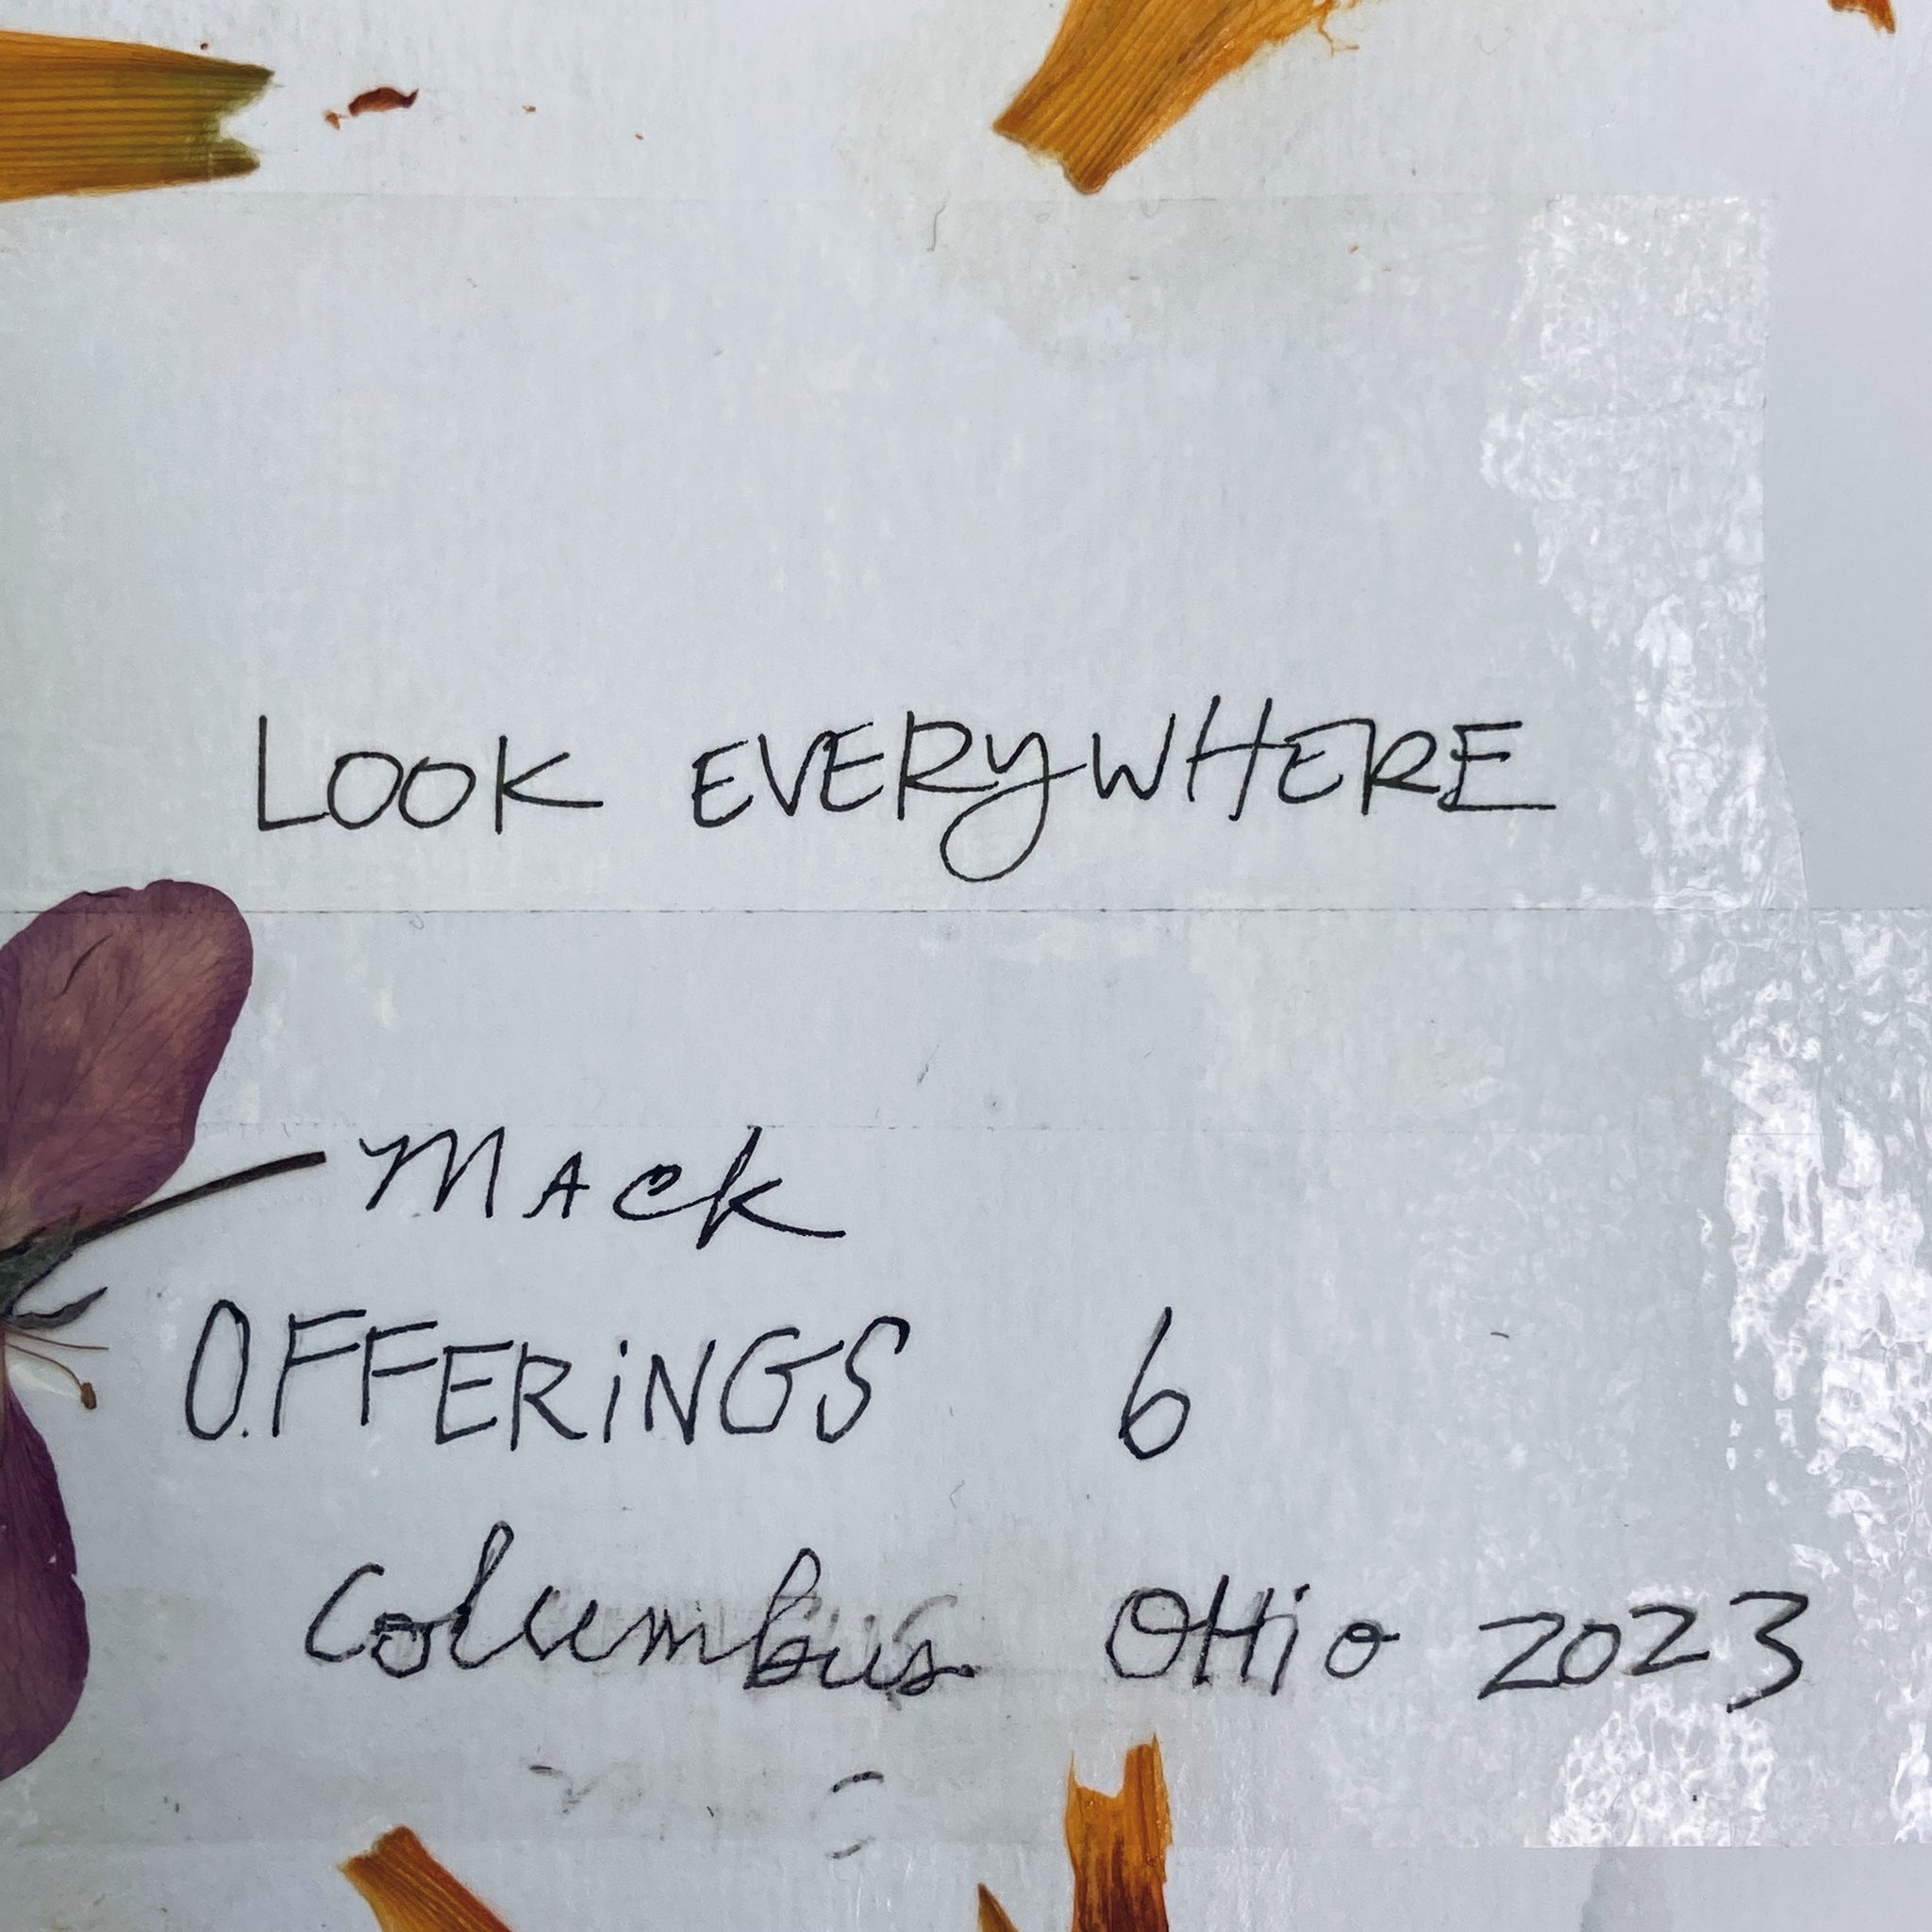 LOOK EVERYWHERE
MAck
OFFERiNGS 6
Columbus OHio 2023